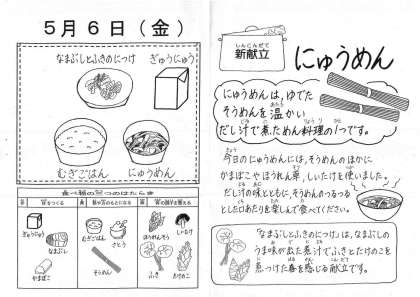 5月6日(金)
なまぶしとふきのにつけ
ぎゅうにゅう
むぎごはん
にゅうめん
食べ物の三つのはたらき
赤 体をつくる
黄 熱や力のもとになる
緑 体の調子を整える
ぎゅうにゅう
なまぶし
かまぼこ
むぎごはん
さとう
そうめん
ほうれんそう
しいたけ
ふき
たけのこ
しんこんだて
新献立
にゅうめん
にゅうめんは、ゆでた
そうめんを温かい
だし汁で煮ためん料理の1つです。
今日のにゅうめんには、そうめんのほかに
かまぼこやほうれん草、しいたけを使いました。
だし汁の味とともに、そうめんのつるつる
とした口あたりを楽しんで食べてください。
「なまぶしとふきのにつけ」は、なまぶしの
うま味が出た煮汁でふきとたけのこを
煮つけた春を感じる献立です。